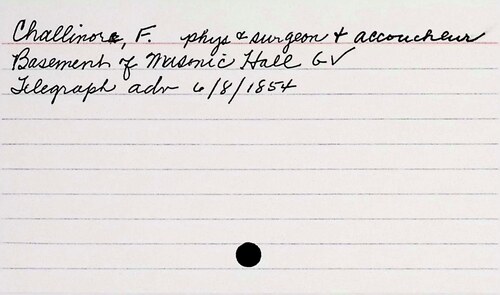 Challinor, F. phys & surgeon & accoucheur
Basement of Masonic Hall GV
Telegraph adv 6/8/1854